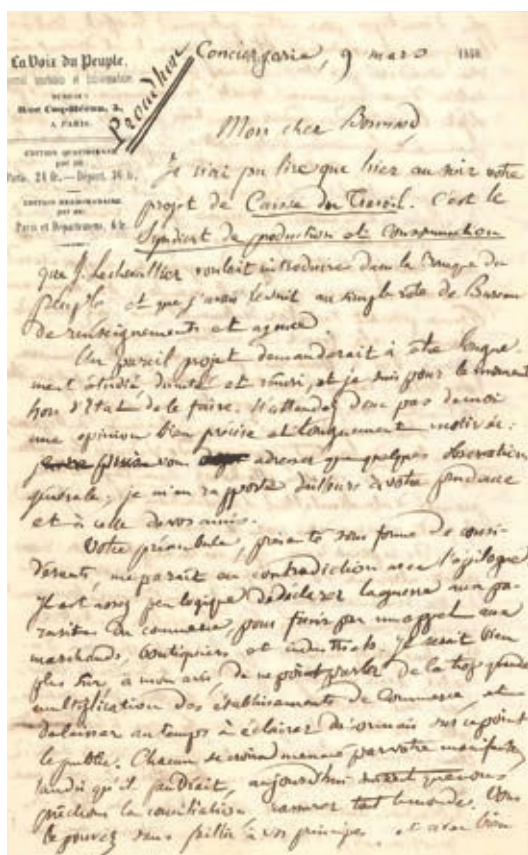 La Voix du Peuple,
Rue Coq-Héron, 3,
A PARIS.
ÉDITION QUOTIDIENNE
Paris, 24 fr. — Départ. 36 fr.
Paris et Départemens, 6 fr.
Proudhon
Conciergerie, 9 mars
Mon cher Bonnard,
Je n'ai pu lire que hier au soir votre
projet de Caisse du Travail. C'est le
Syndicat de production et consommation
que J. Lechevallier voulait introduire dans la Banque du
peuple et que j'avais réduit au simple rôle de Bureau
de renseignements et agence.
Un pareil projet demanderait à être longue-
ment étudié, discuté et mûri, et je suis pour le moment
hors d'état de le faire. N'attendez donc pas de moi
une opinion bien précise et longuement motivée :
vous adresser que quelques observations
générales ; je m'en rapporte d'ailleurs à votre prudence
et à celle de vos amis.
Votre préambule, présenté sous forme de consi-
dérants, me paraît en contradiction avec l'épilogue.
Il est assez peu logique de déclarer la guerre aux pa-
rasites du commerce, pour finir par un appel aux
marchands, boutiquiers et industriels. Il serait bien
plus sûr, à mon avis, de ne point parler de la trop grande
multiplication des établissements de Commerce, et
de laisser au temps à éclairer désormais sur ce point
le public. Chacun se croira menacé par votre manifeste,
tandis qu'il faudrait, aujourd'hui que nous
prêchons la conciliation, rassurer tout le monde. Vous
le pouvez sans faillir à vos principes, et avec bien